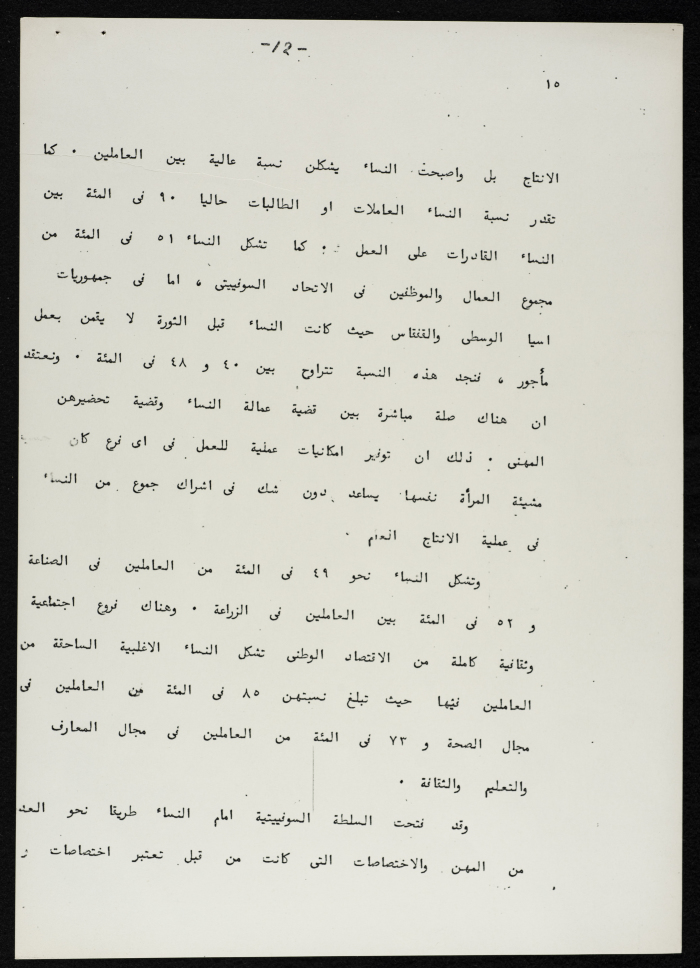 -12-
١٥
الانتاج بل واصبحت النساء يشكلن نسبة عالية بين العاملين . كما
تقدر نسبة النساء العاملات او الطالبات حاليا ٩٠ فى المئة بين
النساء القادرات على العمل . كما تشكل النساء ٥١ فى المئة من
مجموع العمال والموظفين فى الاتحاد السوفييتى ، اما فى جمهوريات
اسيا الوسطى والقفقاس حيث كانت النساء قبل الثورة لا يقمن بعمل
مأجور ، فنجد هذه النسبة تتراوح بين ٤٠ و ٤٨ فى المئة . ونعتقد
ان هناك صلة مباشرة بين قضية عمالة النساء وقضية تحضيرهن
المهنى . ذلك ان توفير امكانيات عملية للعمل فى اى فرع كان
مشيئة المرأة نفسها يساعد دون شك فى اشراك جموع من النساء
فى عملية الانتاج العام .
وتشكل النساء نحو ٤٩ فى المئة من العاملين فى الصناعة
و ٥٢ فى المئة بين العاملين فى الزراعة . وهناك فروع اجتماعية
وثقافية كاملة من الاقتصاد الوطنى تشكل النساء الاغلبية الساحقة من
العاملين فيها حيث تبلغ نسبتهن ٨٥ فى المئة من العاملين فى
مجال الصحة و ٧٣ فى المئة من العاملين فى مجال المعارف
والتعليم والثقافة .
وقد فتحت السلطة السوفييتية امام النساء طريقا نحو العد
من المهن والاختصاصات التى كانت من قبل تعتبر اختصاصات ر